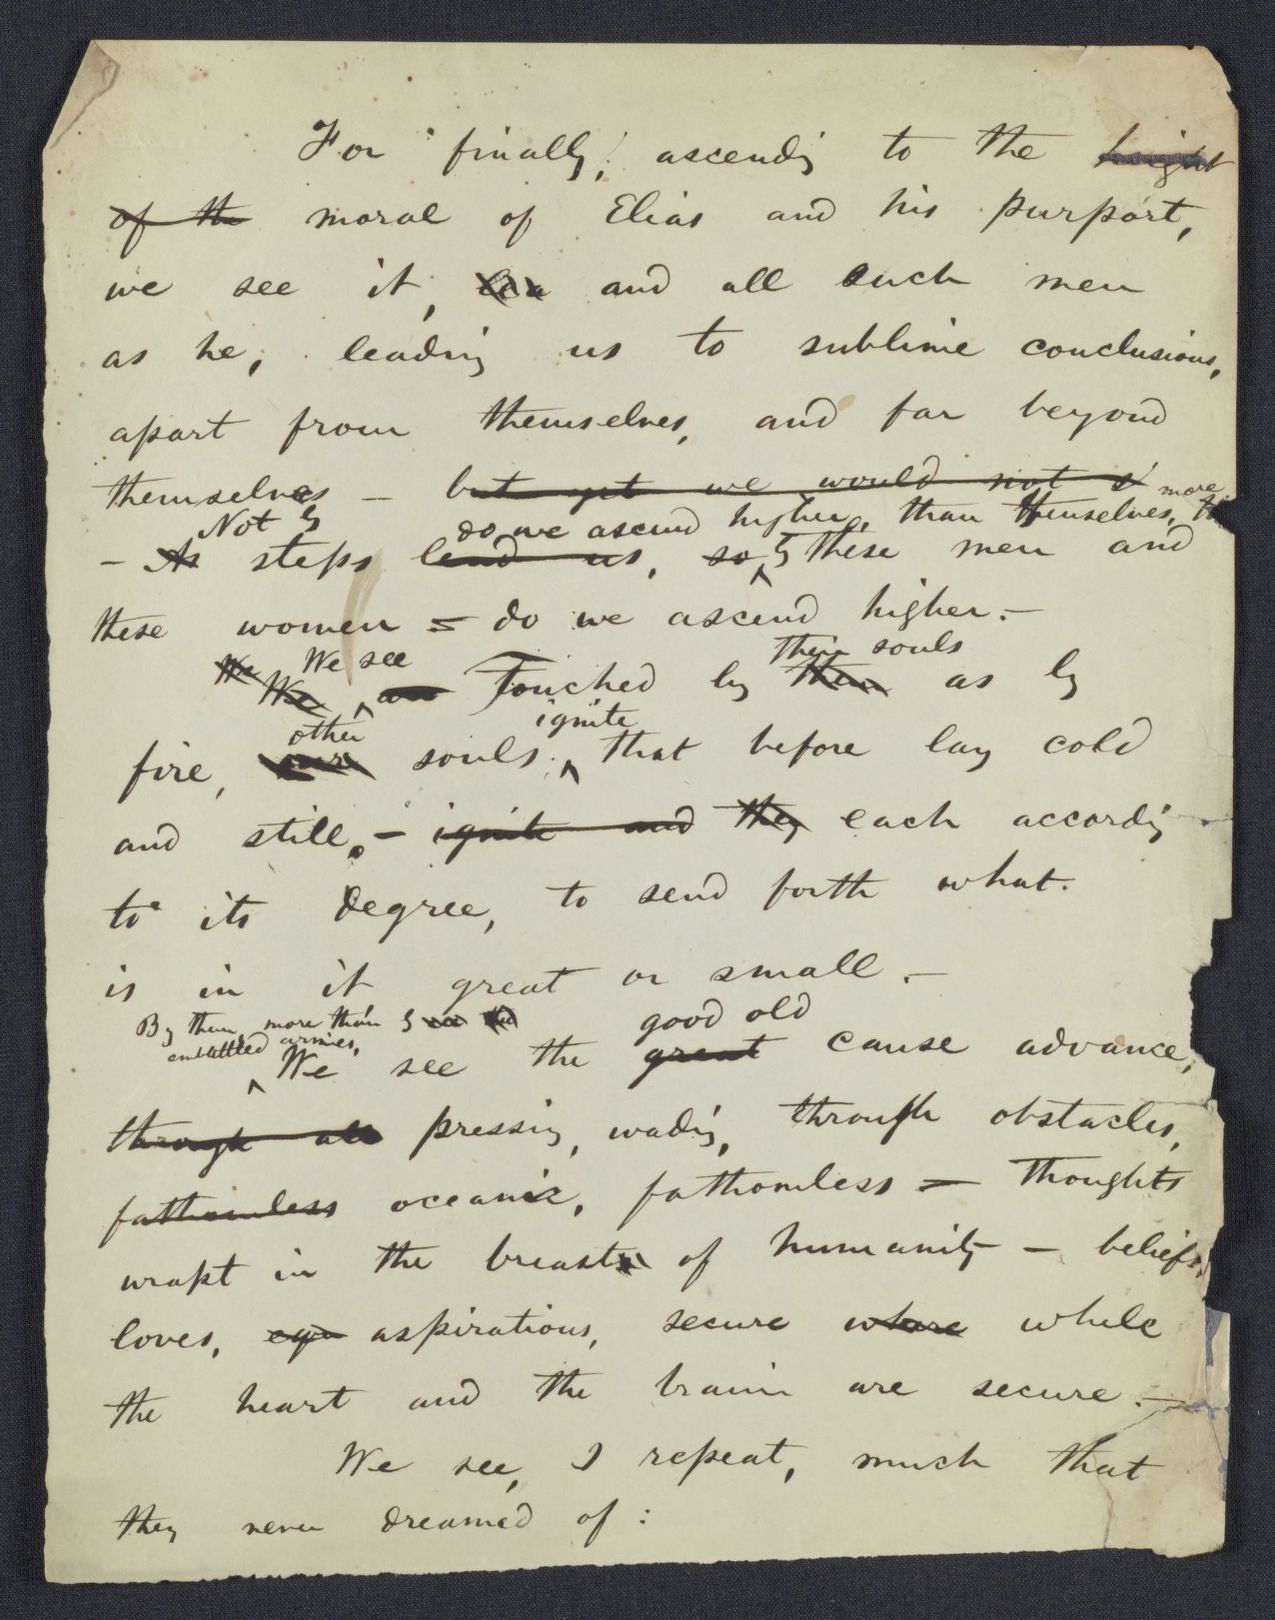 For finally, ascendig to the height
of the moral of Elias and his purport,
we see it, and all such men
as he, leading us to sublime conclusions,
apart from themselves, and far beyond
themselves – but yet we would not s
more
Not by do we ascend higher, than themselves,
– As steps lead us, so, by these men and
these women = do we ascend higher. –
We We see their souls
We are Touched by them as by
other ignite
fire, souls, that before lay cold
and still, – ignite and they each accordig
to its degree, to send forth what
is in it great or small. –
By them, more than by good old
embattled armies,
We see the great cause advance,
through all pressing, wadig, through obstacles,
fathomless oceanic, fathomless = thoughts
wrapt in the breast of humanity – beliefs,
loves, aspirations, secure where while
the heart and the brain are secure. –
We see, I repeat, much that
they never dreamed of :